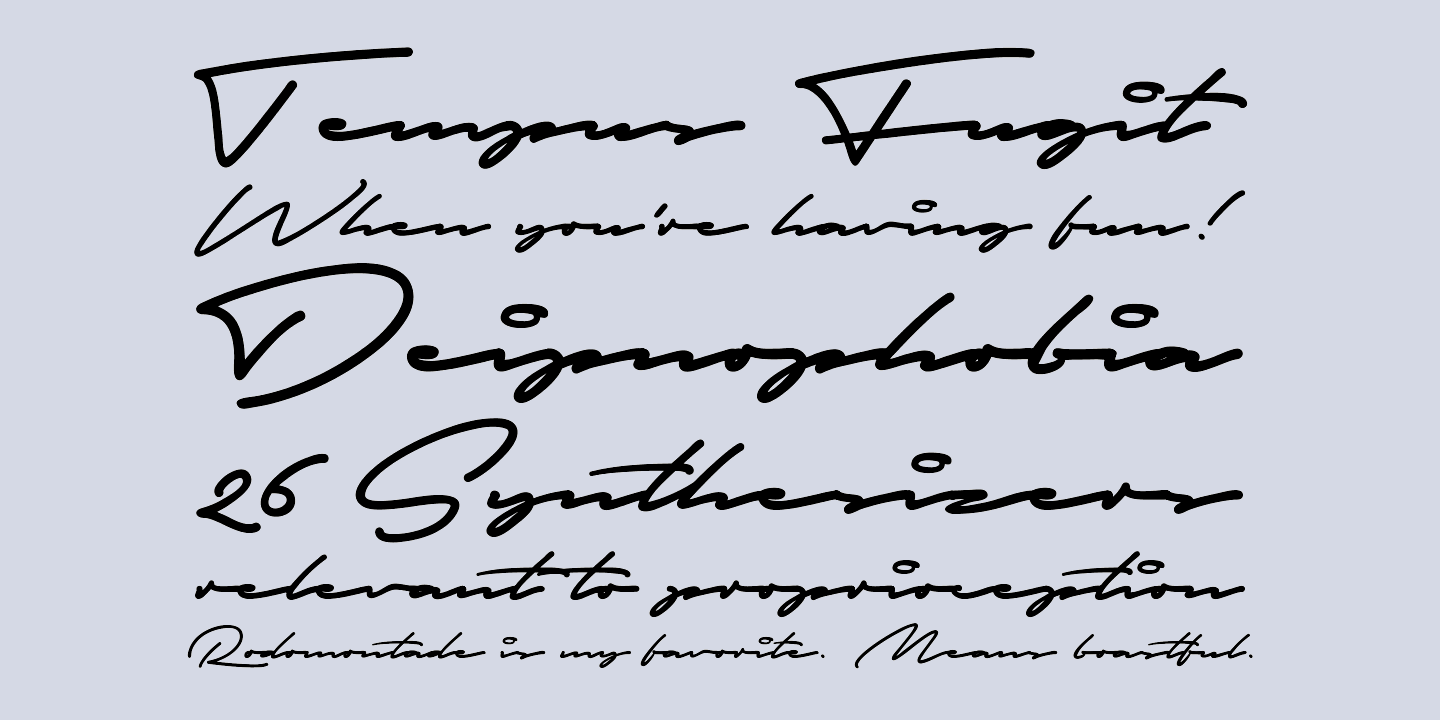 Tempus Fugit
When you've having fun!
Deipnophobia
26 Synthesizers
relevant to proprioception
Rodomontade is my favorite. Means boastful.